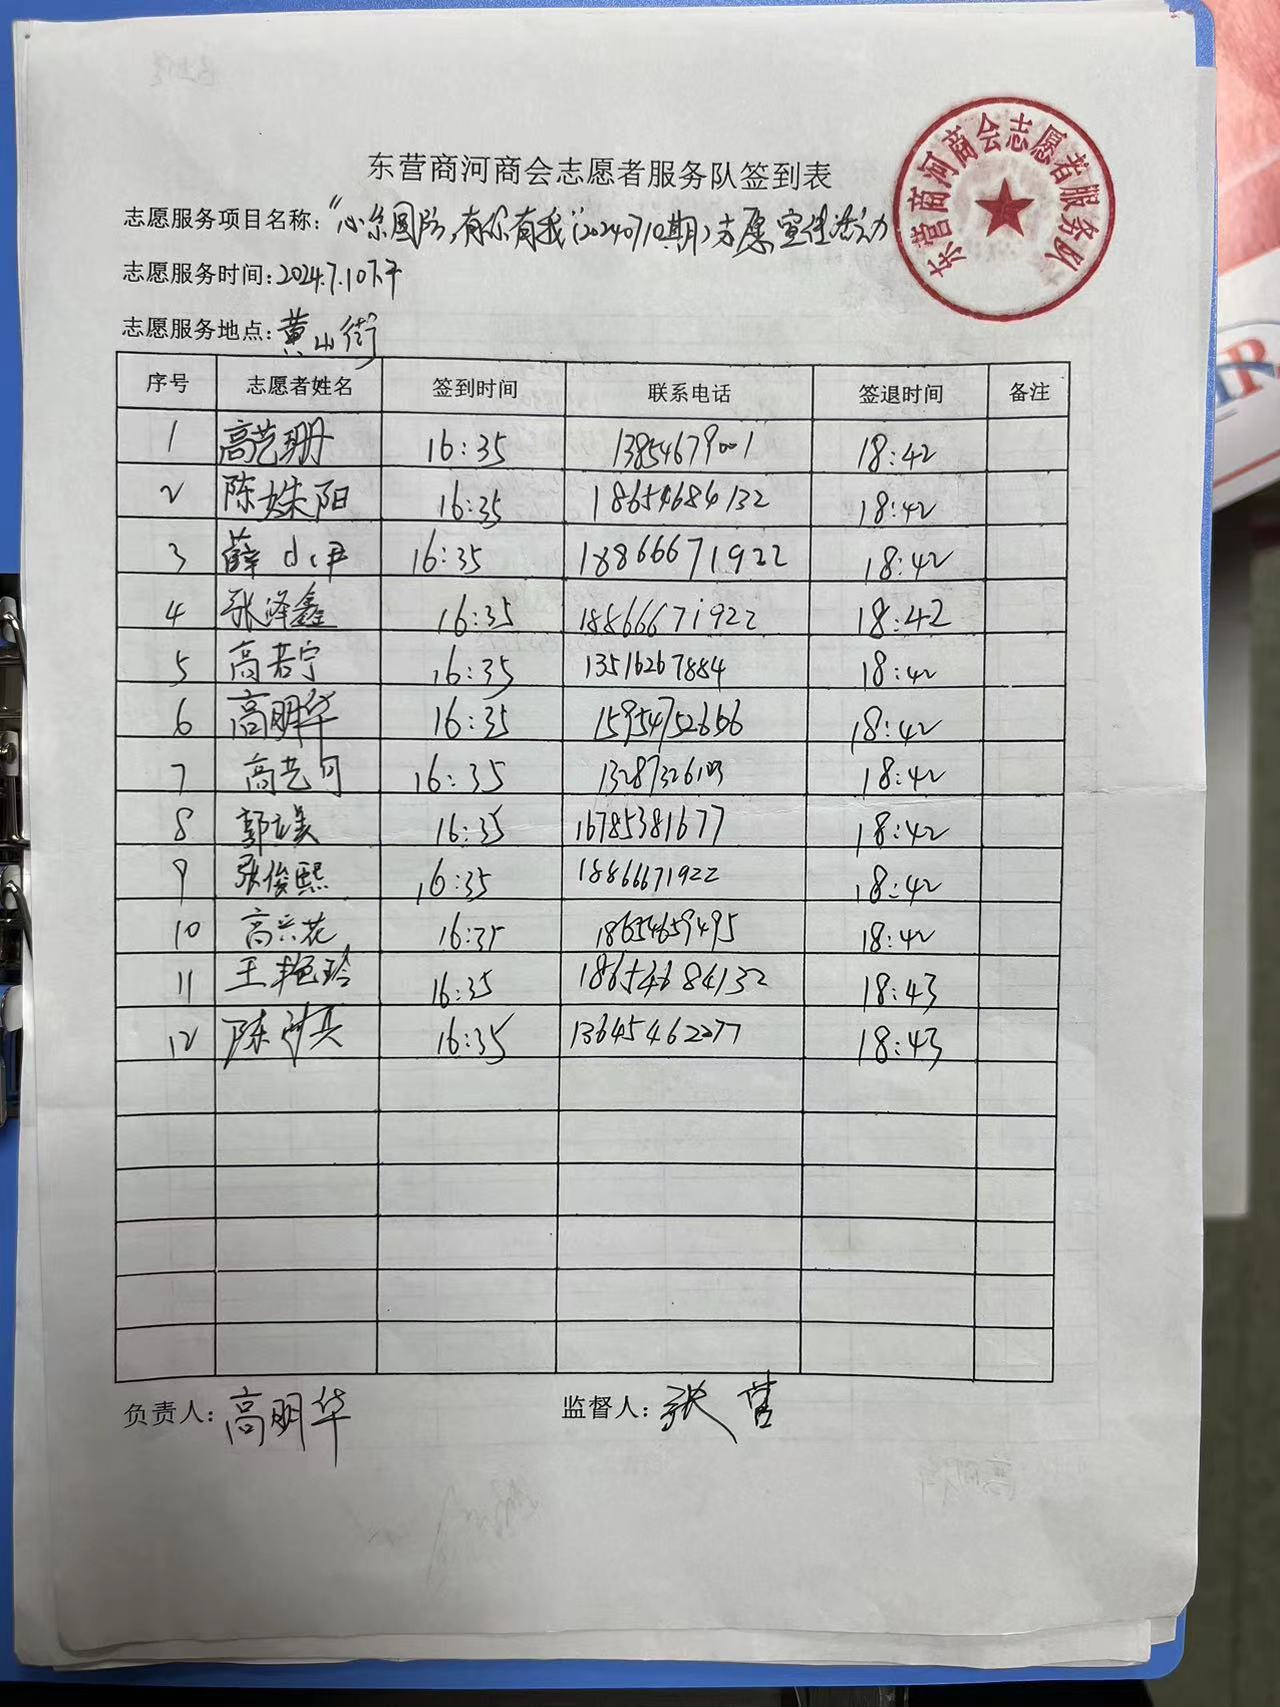 东营商河商会志愿者服务队
东营商河商会志愿者服务队签到表
志愿服务项目名称："心系国防,有你有我"(20240710期)志愿宣传活动
志愿服务时间:2024.7.10下午
志愿服务地点:黄山街
序号 志愿者姓名 签到时间 联系电话 签退时间 备注
1 高艺珊 16:35 13854679001 18:42
2 陈姝阳 16:35 18654684132 18:42
3 薛小尹 16:35 18866671922 18:42
4 张泽鑫 16:35 18866671922 18:42
5 高若宁 16:35 13516267884 18:42
6 高明华 16:35 15954752666 18:42
7 高艺 16:35 18:42
8 郭 16:35 16785381677 18:42
9 张俊熙 16:35 18866671922 18:42
10 高兴花 16:35 18654659495 18:42
11 王艳玲 16:35 18654684132 18:43
12 陈 16:35 13645462277 18:43
负责人：高明华 监督人：张营